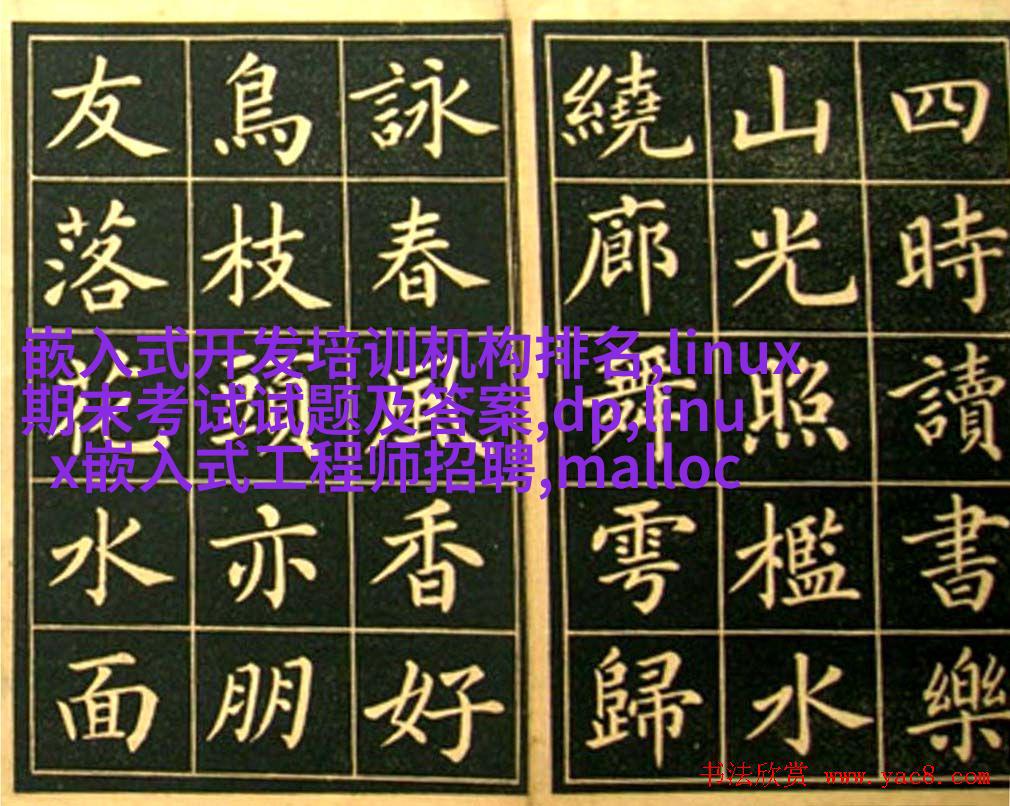 四時讀書樂
山光照檻水
繞廊舞雩歸
詠春風香好
鳥枝頭亦朋
友落花水面
嵌入式开发培训机构排名,linux
期末考试试题及答案,dp,linu
x嵌入式工程师招聘,malloc
书法欣赏 www.yac8.com